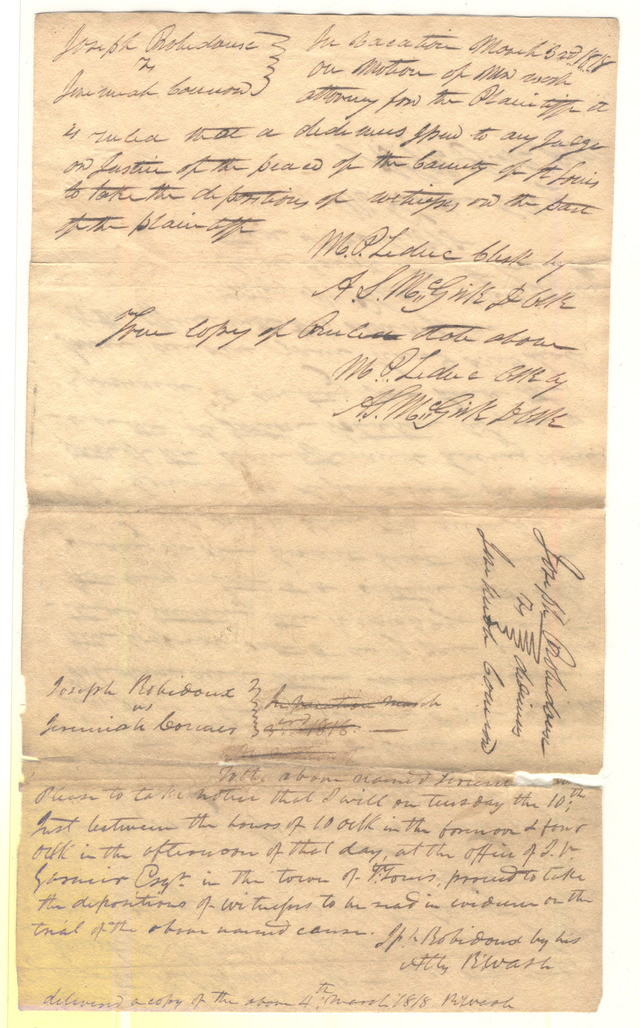 Joseph Robidoux
vs
Jeremiah Connor
In vacation March 3rd 1818
on motion of Mr wash
attorney for the Plaintiff it
is ruled that a dedimus issue to any Judge
or Justice of the peace of the County of St Louis
to take the depositions of witnesses on the part
of the plaintiff
M. P. Leduc Clerk by
A S. McGirk D Clk
True copy of Rule date above
M. P. Leduc Clk by
A. S. McGirk D Clk
Joseph Robidoux
vs dedimus
Jeremiah Connor
Joseph Robidoux
vs
Jeremiah Connor
In vacation March
3rd 1818.
To the above named Jeremiah
Please to take notice that I will on tuesday the 10th
Inst between the hours of 10 oclk in the forenoon & four
oclk in the afternoon of that day, at the office of J. V.
Garnier Esqr. in the town of St. Louis, proceed to take
the depositions of witnesses to be read in evidence on the
trial of the above named cause.
Jph. Robidoux by his
Atty R Wash
delivered a copy of the above 4th March 1818 R Wash